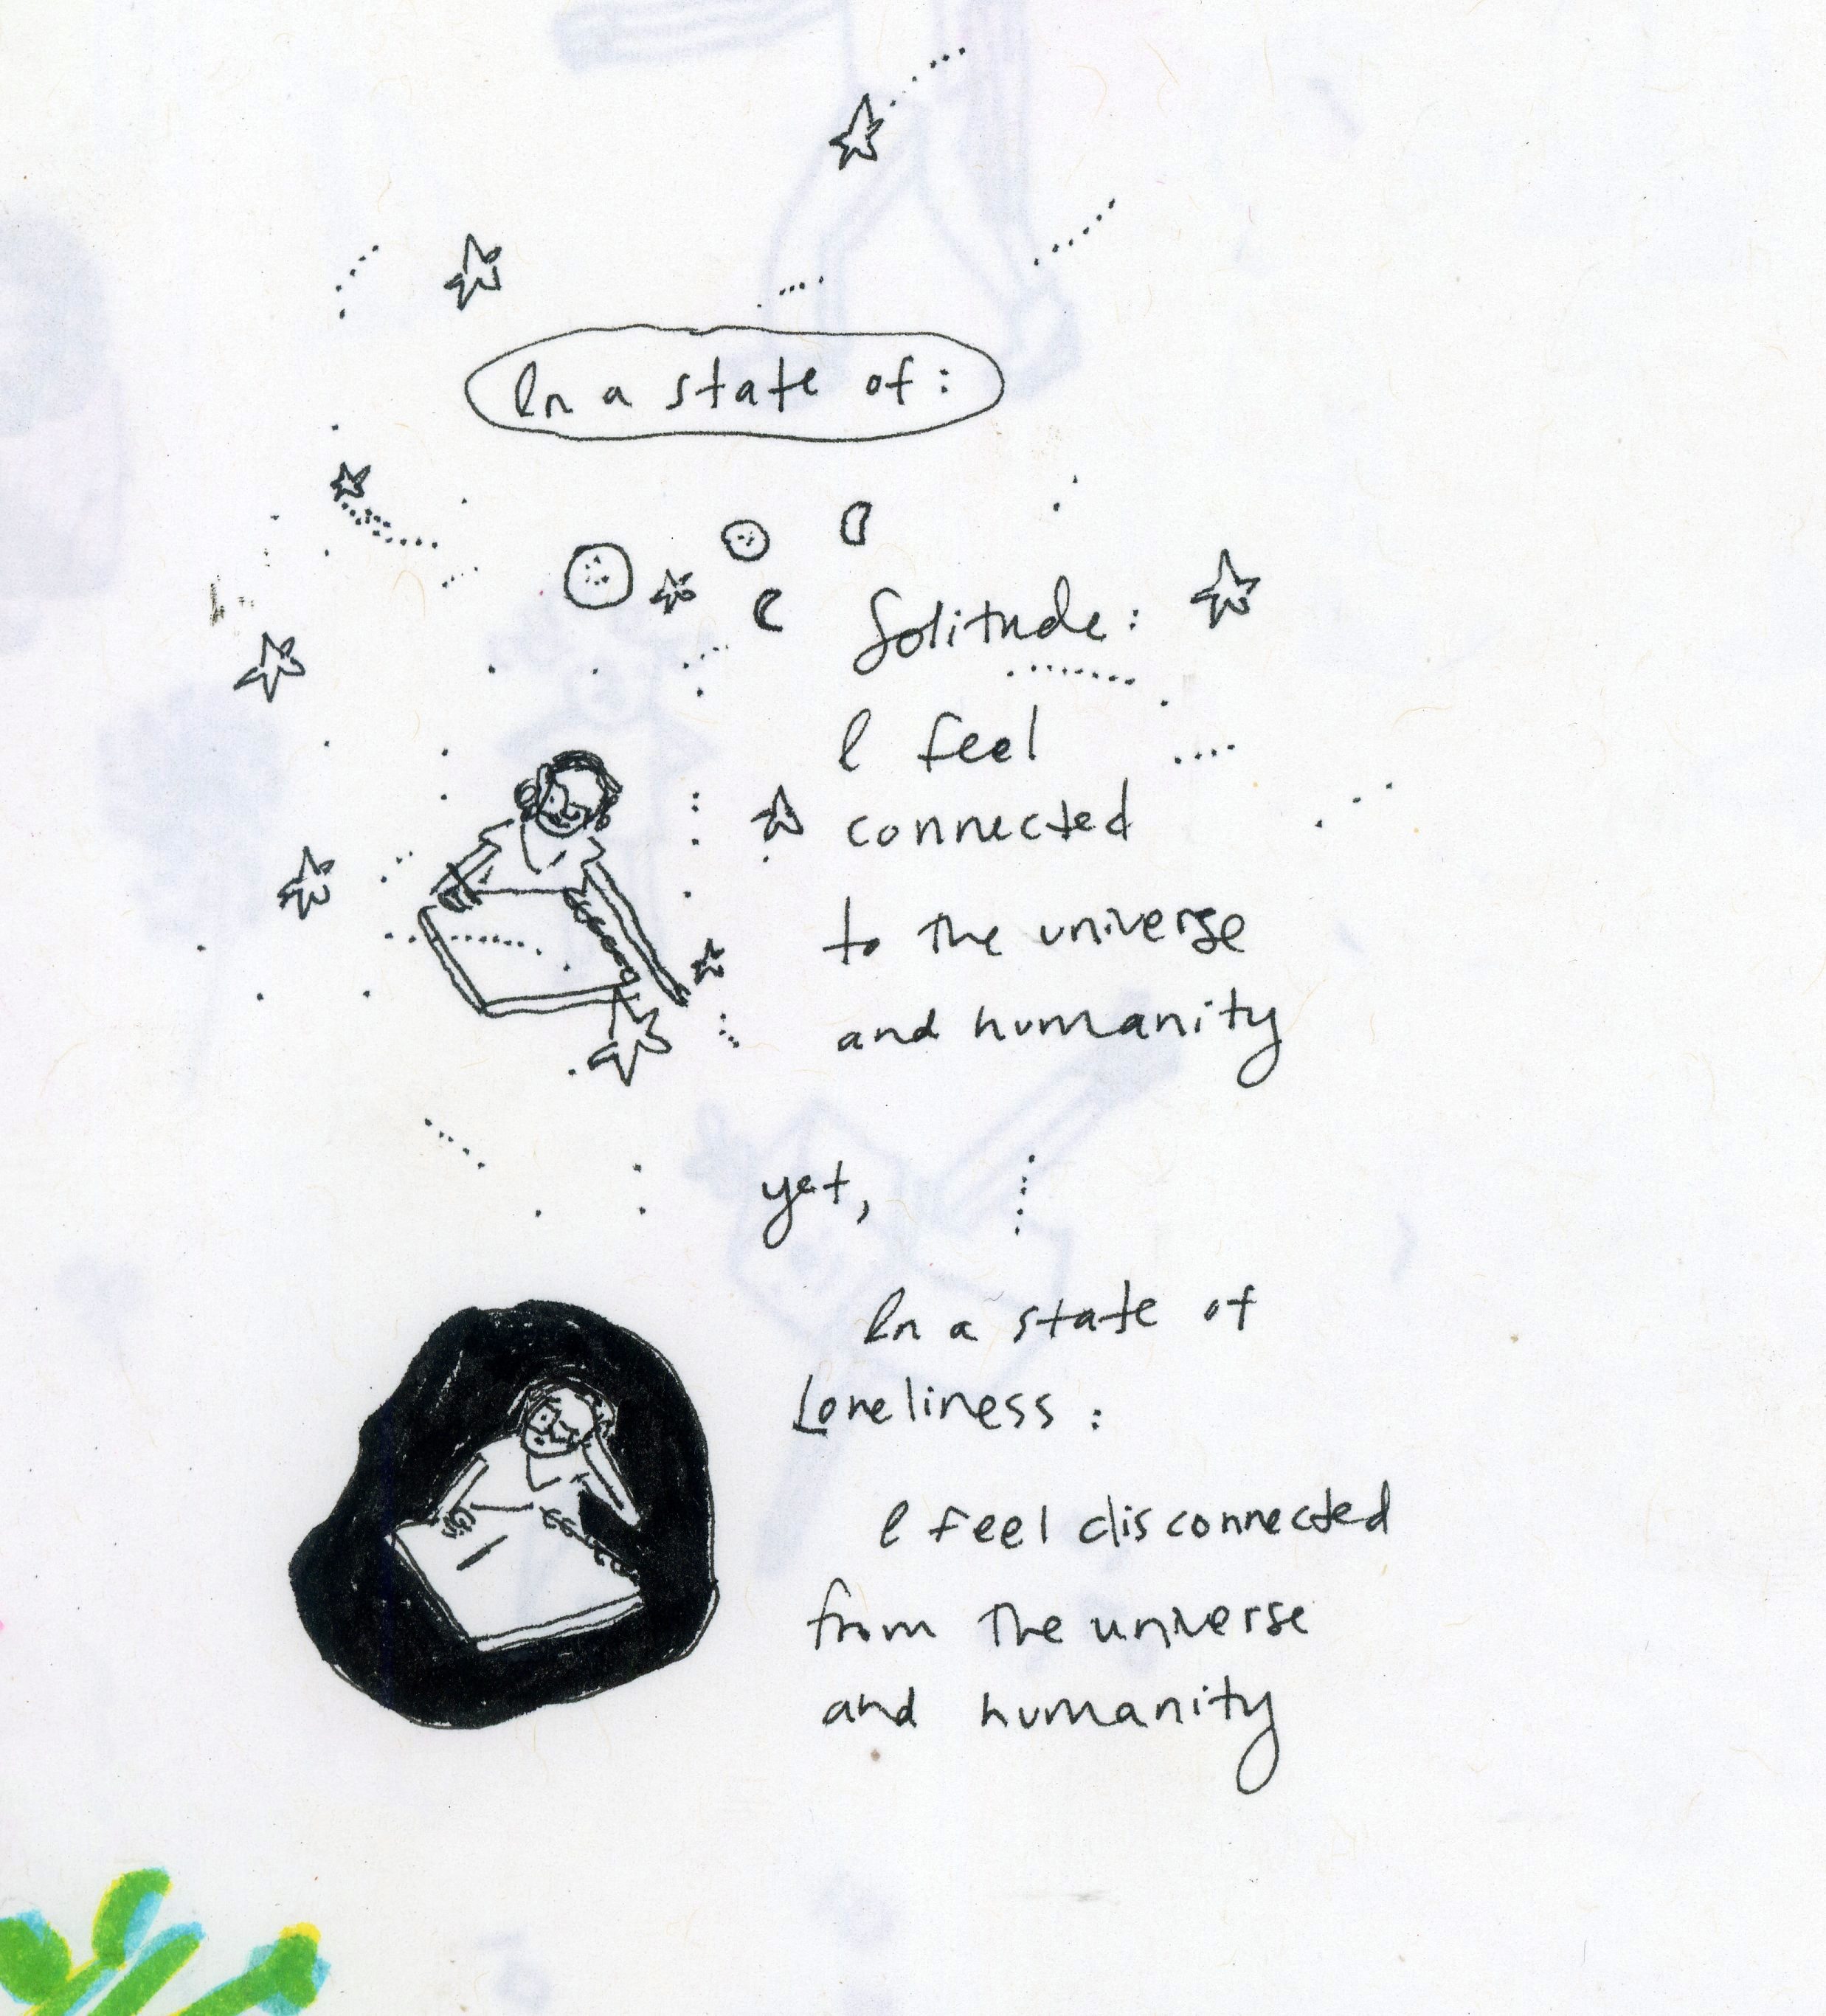 In a state of:
Solitude:
I feel
connected
to the universe
and humanity
yet,
In a state of
Loneliness:
I feel disconnected
from the universe
and humanity